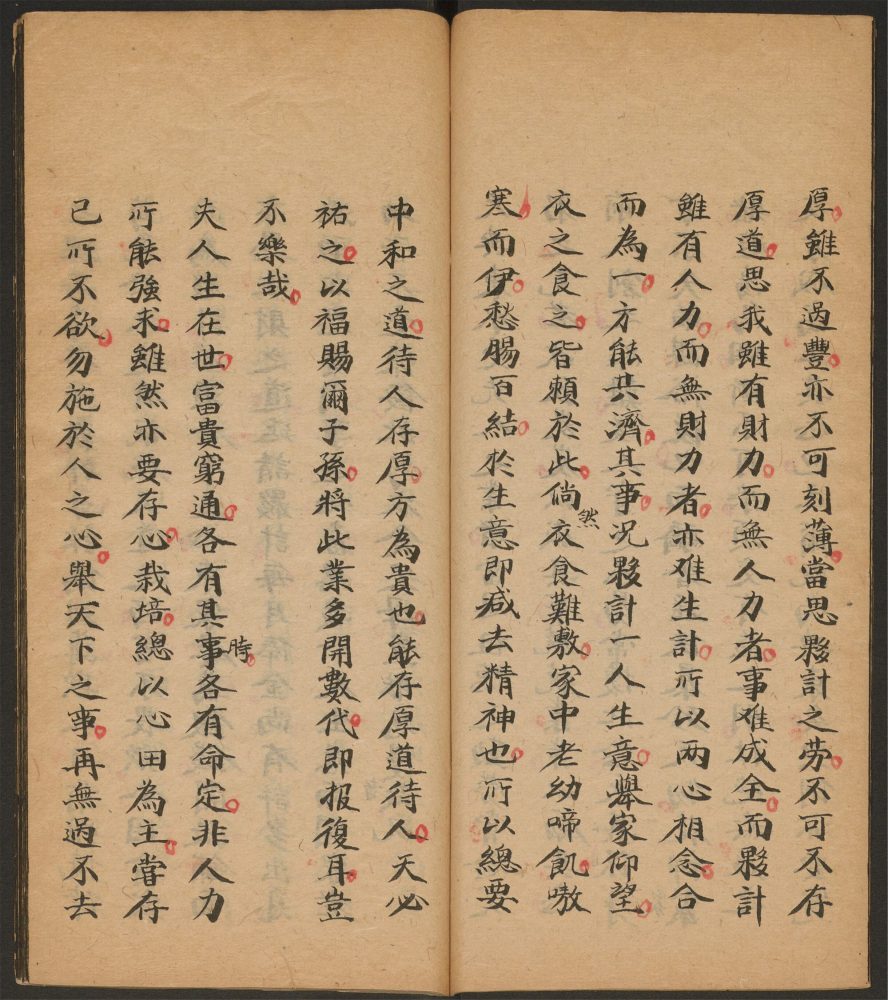 厚雖不過豐亦不可刻薄當思夥計之劳不可不存
厚道思我雖有財力而無人力者事难成全而夥計
雖有人力而無財力者亦难生計所以两心相念合
而為一方能共濟其事况夥計一人生意舉家仰望
衣之食之皆賴於此倘然衣食難敷家中老幼啼飢嗷
寒而伊愁腸百結於生意即减去精神也所以總要
中和之道待人存厚方為貴也能存厚道待人天必
祐之以福賜爾子孫將此業多開數代即报復耳豈
不樂哉
夫人生在世富貴窮通各有其時事各有命定非人力
所能強求雖然亦要存心栽培總以心田為主當存
己所不欲勿施於人之心舉天下之事再無過不去